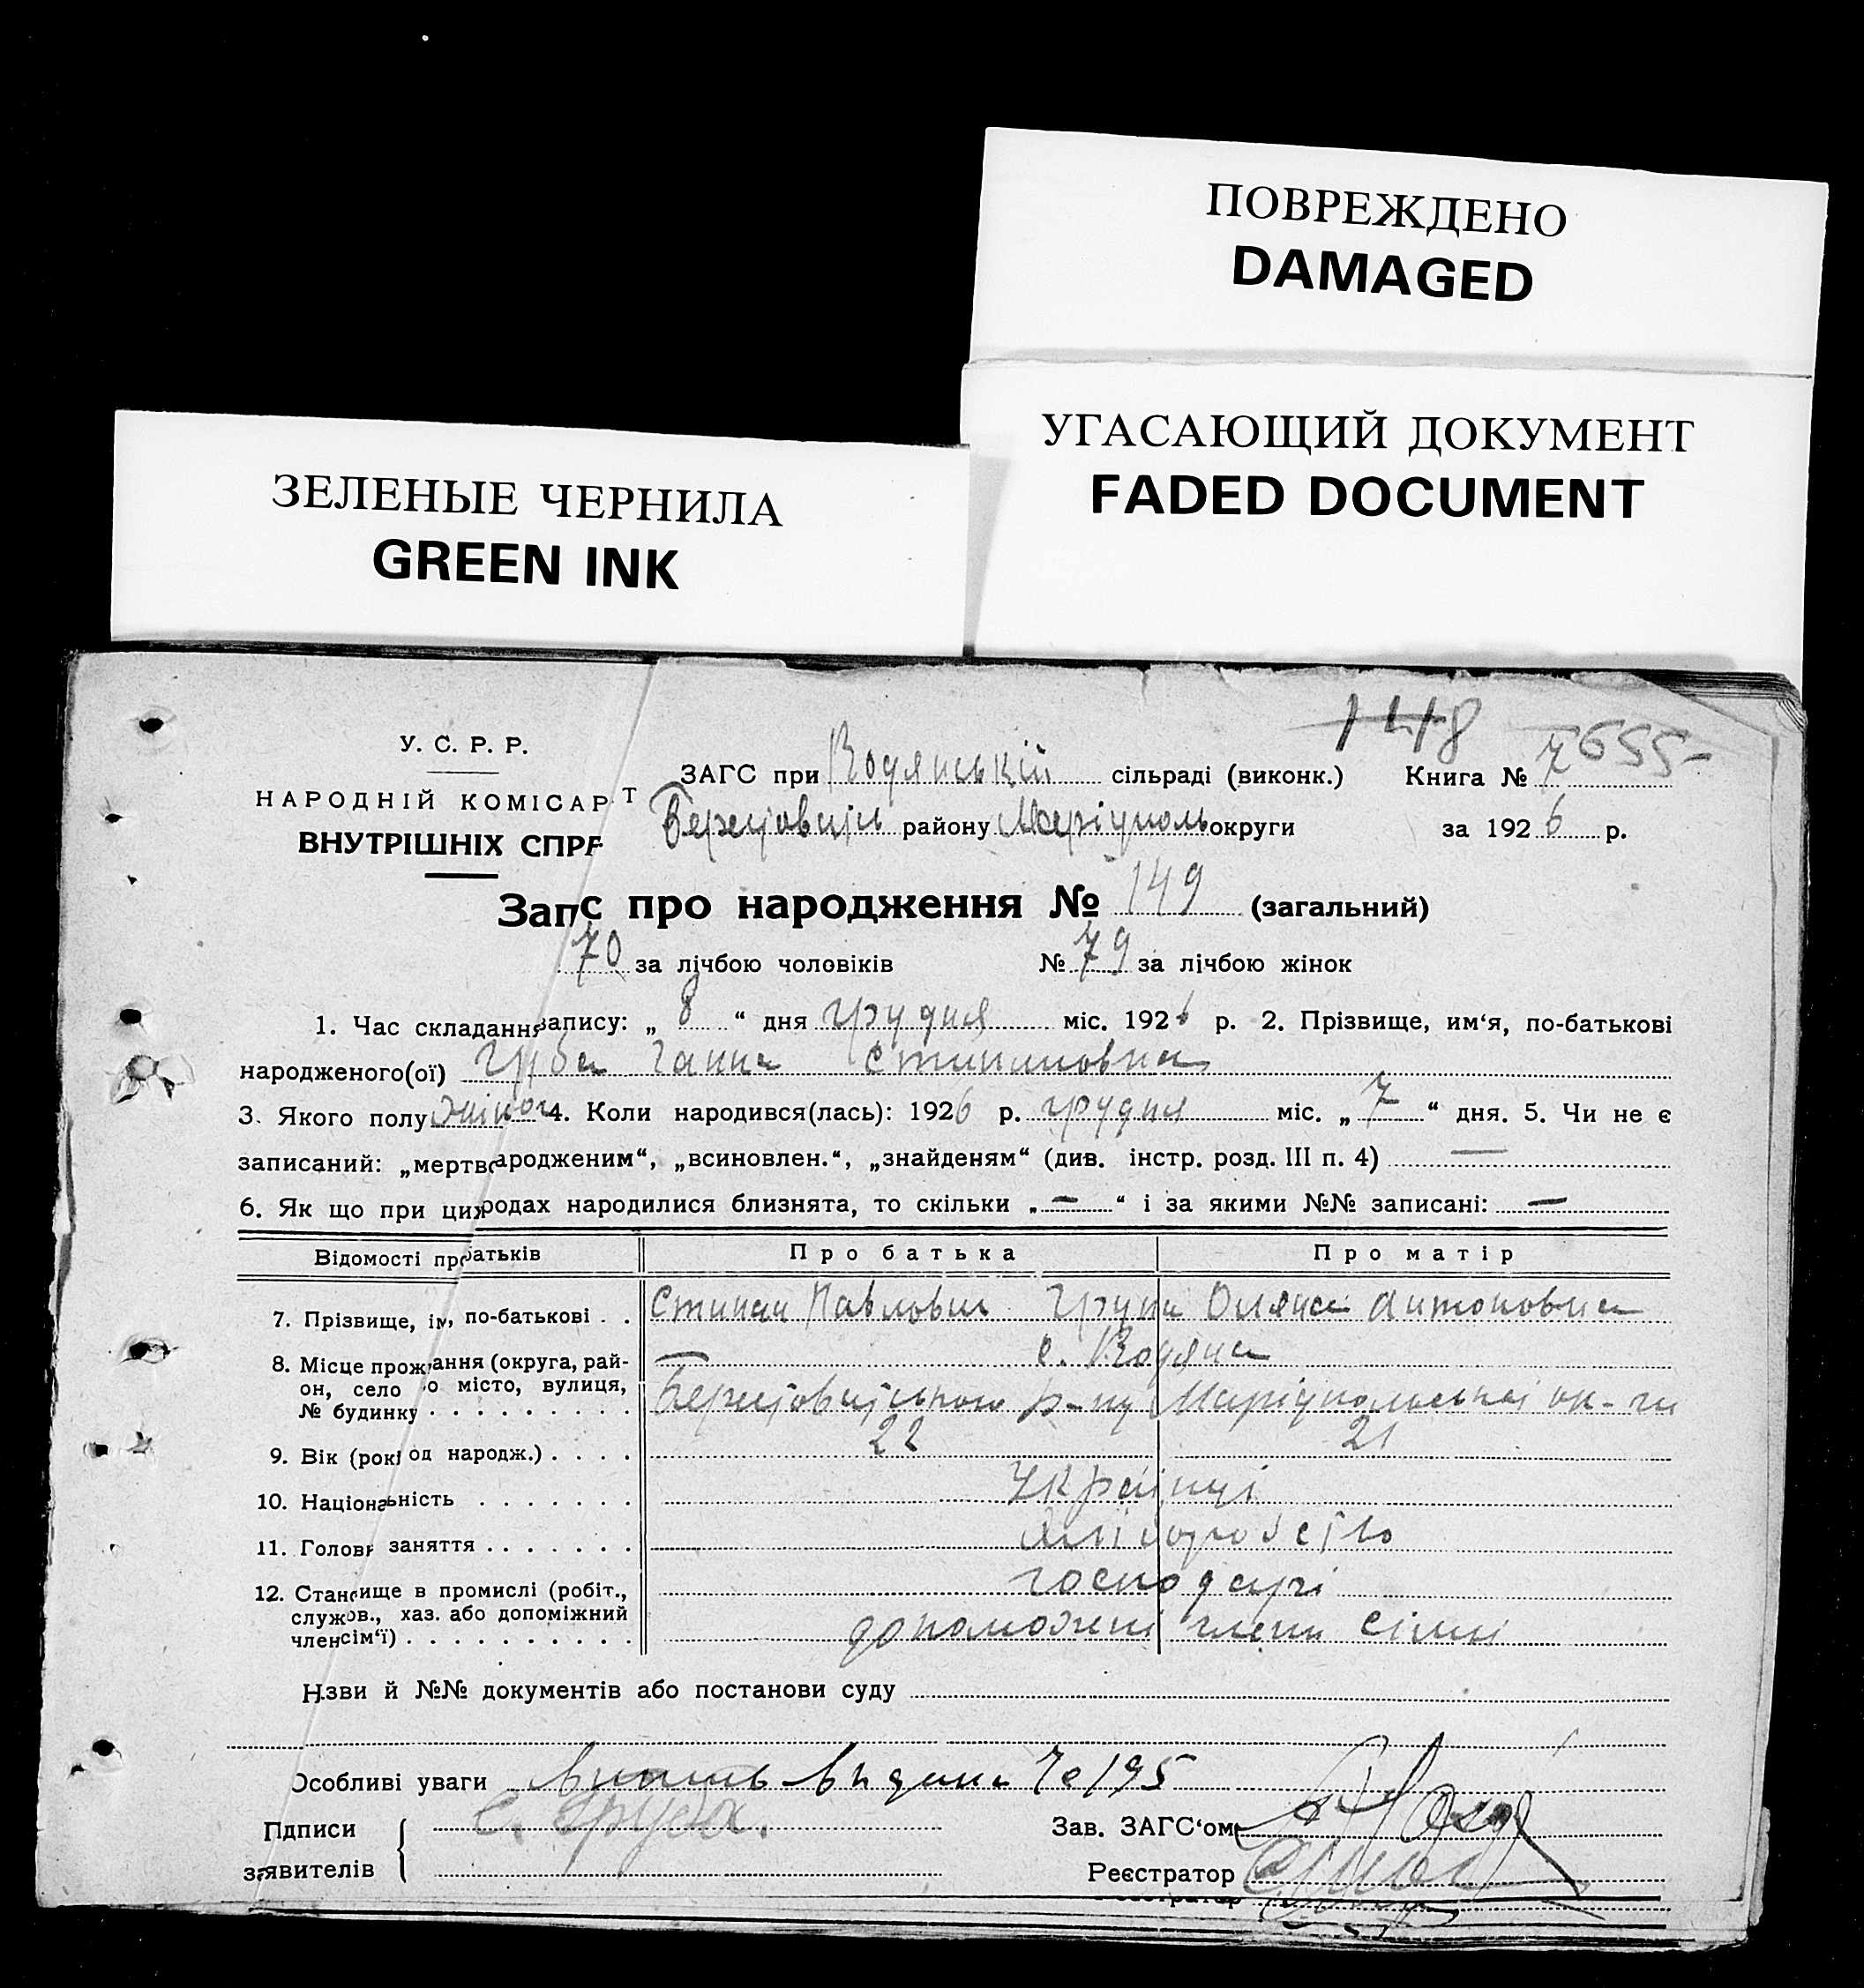 ПОВРЕЖДЕНО
DAMAGED
УГАСАЮЩИЙ ДОКУМЕНТ
FADED DOCUMENT
ЗЕЛЕНЫЕ ЧЕРНИЛА
GREEN INK
1418 7655-
У. С. Р. Р.
НАРОДНІЙ КОМІСАР Т
ВНУТРІШНІХ СПР
ЗАГС при Водянській сільраді (виконк.) Книга № 7
району Маріуполь округи за 1926 р.
Запс про народження № 149 (загальний)
70 за лічбою чоловіків № 79 за лічбою жінок
1. Час складання запису: „ 8 “ дня грудня міс. 1926 р. 2. Прізвище, им‘я, по-батькові
народженого(ої) Ганна
3. Якого полу жіноч 4. Коли народився(лась): 1926 р. грудня міс. „ 7 “ дня. 5. Чи не є
записаний: „мертвонародженим“, „всиновлен.“, „знайденям“ (див. інстр. розд. III п. 4) —
6. Як що при цих родах народилися близнята, то скільки „ — “ і за якими №№ записані: —
Відомості про батьків Про батька Про матір
7. Прізвище, ім, по-батькові . . Степан Павлович Груба Оляна Антоновна
8. Місце прожвання (округа, рай- с. Водяна
он, село бо місто, вулиця,
№ будинку . . . . . . . . . р-ну Маріупольської ок-ги
9. Вік (рокі од народж.) . . . . 22 21
10. Національність . . . . . . . Українці
11. Головн заняття . . . . . . . хліборобство
12. Становище в промислі (робіт., господарі
служов., хаз. або допоміжний
член сім‘ї) . . . . . . . . . . допоможні члени сімї
Назви й №№ документів або постанови суду
Особливі уваги видана № 195
Пдписи С. Груба. Зав. ЗАГС‘ом
заявителів Реєстратор